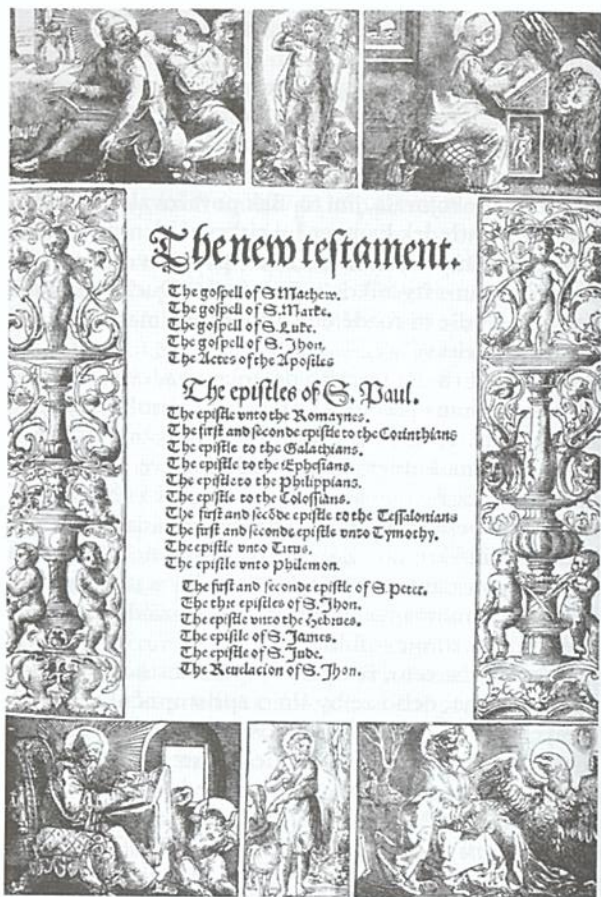 The new testament.
The gospell of S. Mathew.
The gospell of S. Marke.
The gospell of S. Luke.
The gospell of S. Jhon.
The Actes of the Apostles
The epistles of S. Paul.
The epistle vnto the Romaynes.
The first and seconde epistle to the Corinthians
The epistle to the Galathians.
The epistle to the Ephesians.
The epistle to the Philippians.
The epistle to the Colossians.
The first and secōde epistle to the Tessalonians
The first and seconde epistle vnto Tymothy.
The epistle vnto Titus.
The epistle vnto Philemon.
The first and seconde epistle of S. Peter.
The thre epistles of S. Jhon.
The epistle vnto the Hebrues.
The epistle of S. James.
The epistle of S. Jude.
The Reuelacion of S. Jhon.